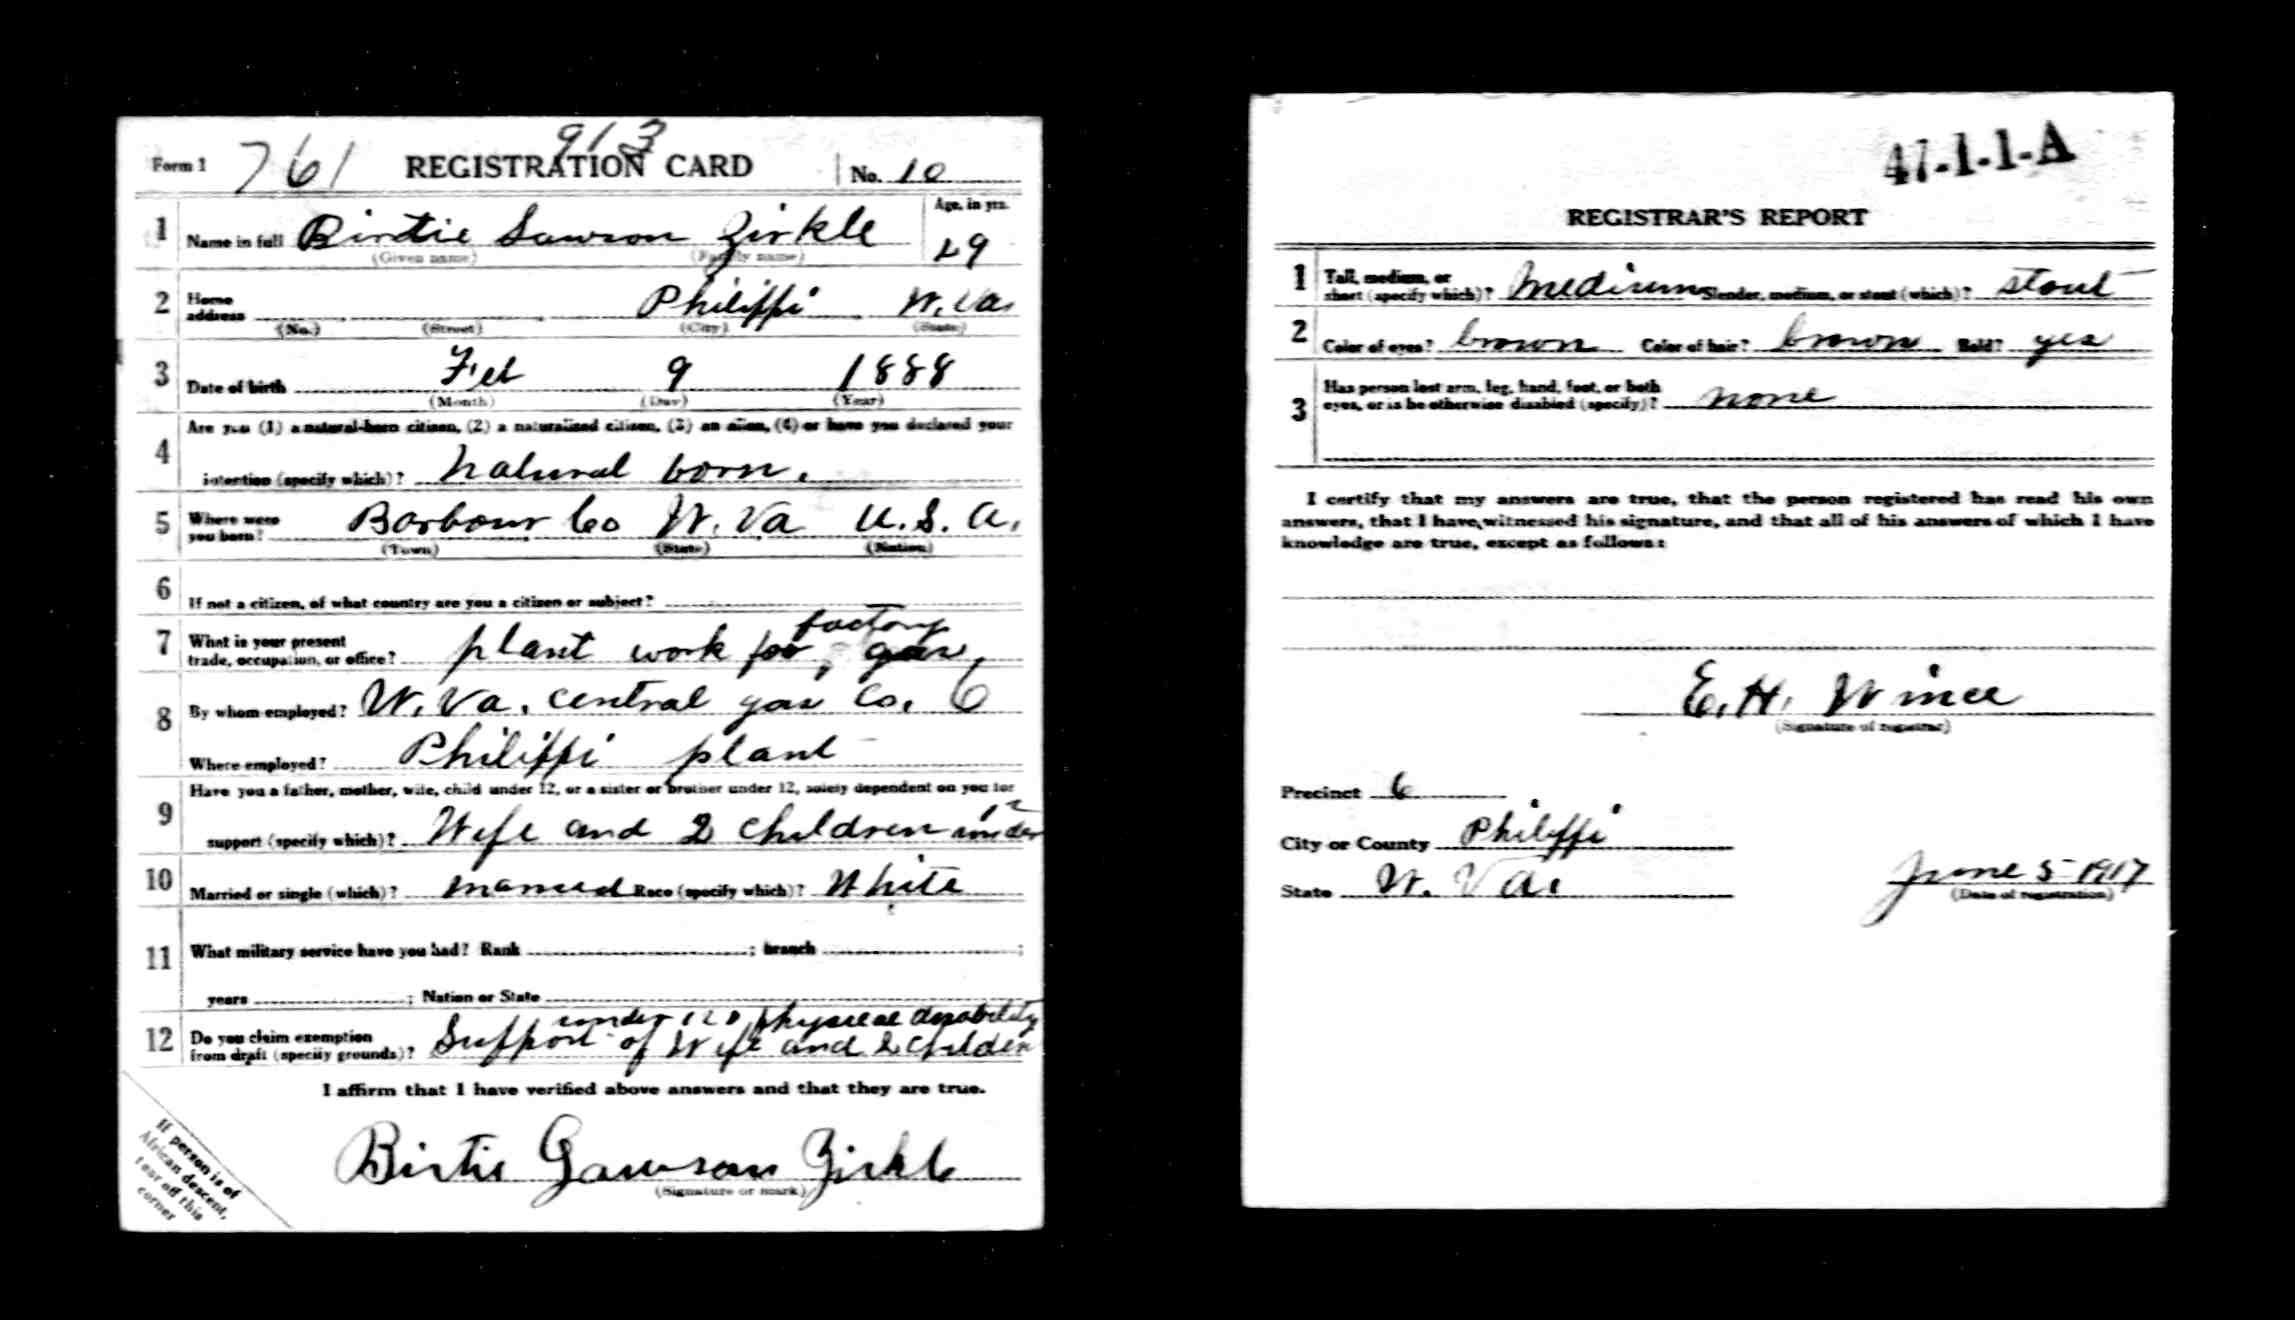 913
Form 1 761 REGISTRATION CARD No. 10
1 Name in full Birtie Lawson Zirkle Age, in yrs. 29
(Given name) (Family name)
2 Home address Philippi W. Va.
(No.) (Street) (City) (State)
3 Date of birth Feb 9 1888
(Month) (Day) (Year)
4 Are you (1) a natural-born citizen, (2) a naturalized citizen, (3) an alien, (4) or have you declared your
intention (specify which)? natural born.
5 Where were you born? Barbour Co W. Va U. S. A.
(Town) (State) (Nation)
6 If not a citizen, of what country are you a citizen or subject?
factory
7 What is your present trade, occupation, or office? plant work for, gas,
8 By whom employed? W. Va. central gas Co. 6
Where employed? Philippi plant
9 Have you a father, mother, wife, child under 12, or a sister or brother under 12, solely dependent on you for
12
support (specify which)? Wife and 2 children under
10 Married or single (which)? married Race (specify which)? White
11 What military service have you had? Rank ; branch ;
years ; Nation or State
under 12, physical disability
12 Do you claim exemption from draft (specify grounds)? Support of Wife and 2 children
I affirm that I have verified above answers and that they are true.
Birtie Lawson Zirkle
(Signature or mark)
If person is of
African descent,
tear off this
corner
47-1-1-A
REGISTRAR'S REPORT
1 Tall, medium, or short (specify which)? Medium Slender, medium, or stout (which)? stout
2 Color of eyes? brown Color of hair? brown Bald? yes
3 Has person lost arm, leg, hand, foot, or both eyes, or is he otherwise disabled (specify)? none
I certify that my answers are true, that the person registered has read his own
answers, that I have witnessed his signature, and that all of his answers of which I have
knowledge are true, except as follows:
E. H. Wince
(Signature of registrar)
Precinct 6
City or County Philippi
State W. Va. June 5 1917
(Date of registration)